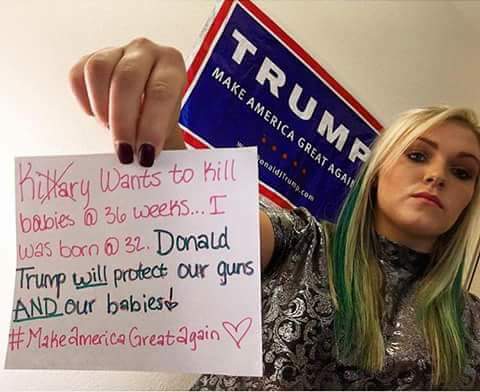 TRUMP
MAKE AMERICA GREAT AGAIN
onaldJTrump.com
Killary Wants to kill
babies @ 36 weeks... I
was born @ 32. Donald
Trump will protect our guns
AND our babies!
#MakeAmericaGreatAgain ♡